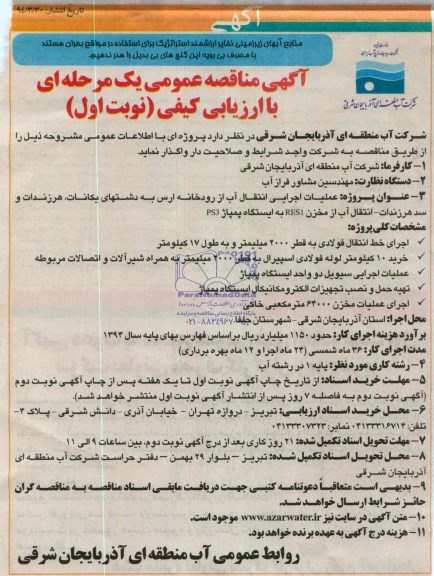 تاریخ انتشار: ۹۴/۳/۳۰
آگهی
منابع آبهای زیرزمینی ذخایر ارزشمند استراتژیک برای استفاده در مواقع بحران هستند
با مصرف بی رویه این گنج های بی بدیل را هدر ندهیم.
شرکت آب منطقه ای آذربایجان شرقی
آگهی مناقصه عمومی یک مرحله ای
با ارزیابی کیفی (نوبت اول)
شرکت آب منطقه ای آذربایجان شرقی در نظر دارد پروژه ای با اطلاعات عمومی مشروحه ذیل را
از طریق مناقصه به شرکت واجد شرایط و صلاحیت دار واگذار نماید
۱- کارفرما: شرکت آب منطقه ای آذربایجان شرقی
۲- دستگاه نظارت: مهندسین مشاور فراز آب
۳- عنوان پروژه: عملیات اجرایی انتقال آب از رودخانه ارس به دشتهای یکانات، هرزندات و
سد هرزندات- انتقال آب از مخزن RES1 به ایستگاه پمپاژ PS3
مشخصات کلی پروژه:
✓ اجرای خط انتقال فولادی به قطر ۲۰۰۰ میلیمتر و به طول ۱۷ کیلومتر
✓ خرید ۱۰ کیلومتر لوله فولادی اسپیرال به قطر ۲۰۰۰ میلیمتر به همراه شیرآلات و اتصالات مربوطه
✓ عملیات اجرایی سیویل دو واحد ایستگاه پمپاژ
✓ تهیه حمل و نصب تجهیزات الکترومکانیکال ایستگاه پمپاژ
✓ اجرای عملیات مخزن ۶۴۰۰۰ مترمکعبی خاکی
محل اجرا: استان آذربایجان شرقی- شهرستان جلفا
برآورد هزینه اجرای کار: حدود ۱۱۵۰ میلیارد ریال براساس فهارس بهای پایه سال ۱۳۹۳
مدت اجرای کار: ۳۶ ماه شمسی (۲۴ ماه اجرا و ۱۲ ماه بهره برداری)
۴- رشته کاری مورد نظر: پایه ۱ در رشته آب
۵- مهلت خرید اسناد: از تاریخ چاپ آگهی نوبت اول تا یک هفته پس از چاپ آگهی نوبت دوم
(آگهی نوبت دوم به فاصله ۷ روز پس از انتشار آگهی نوبت اول منتشر خواهد شد.)
۶- محل خرید اسناد ارزیابی: تبریز - دروازه تهران - خیابان آذری - دانش شرقی - پلاک ۴-
تلفن: ۰۴۱۳۳۳۱۶۷۱۴ نمابر: ۰۴۱۳۳۳۰۷۳۲۳
۷- مهلت تحویل اسناد تکمیل شده: ۲۱ روز کاری بعد از درج آگهی نوبت دوم، بین ساعات ۹ الی ۱۱
۸- محل تحویل اسناد تکمیل شده: تبریز - بلوار ۲۹ بهمن - دفتر حراست شرکت آب منطقه ای
آذربایجان شرقی
۹- بدیهی است متعاقباً دعوتنامه کتبی جهت دریافت مابقی اسناد مناقصه به مناقصه گران
حائز شرایط ارسال خواهد شد.
۱۰- متن آگهی در سایت نیز www.azarwater.ir موجود است.
۱۱- هزینه درج آگهی به عهده برنده خواهد بود.
روابط عمومی آب منطقه ای آذربایجان شرقی